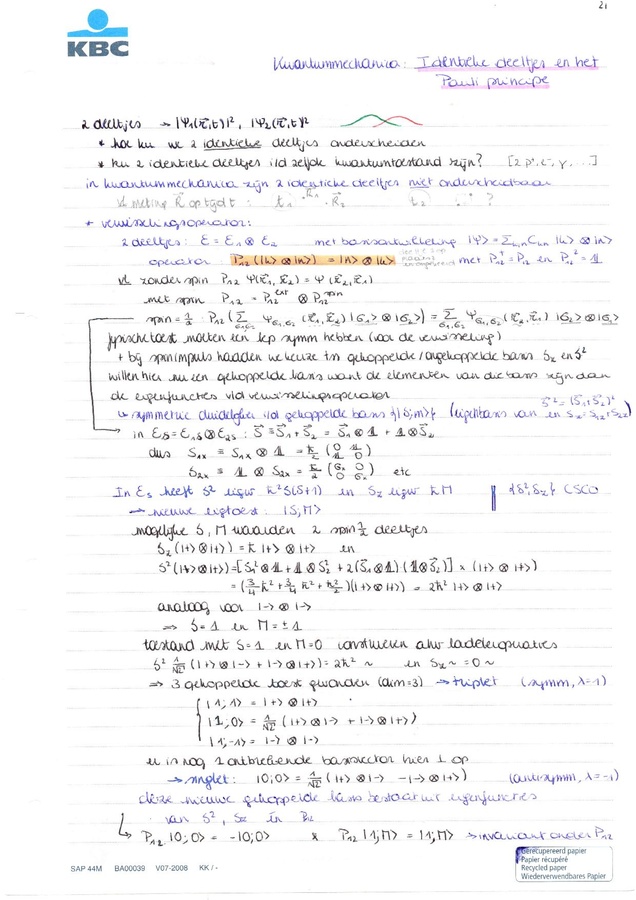 21
KBC
Kwantummechanica: Identieke deeltjes en het
Pauli principe
2 deeltjes → |Ψ₁(r⃗,t)|², |Ψ₂(r⃗,t)|²
* hoe ku we 2 identieke deeltjes onderscheiden
* ku 2 identieke deeltjes i/d zelfde kwantumtoestand zijn? [2 p⁺, e⁻, γ, ...]
in kwantummechanica zijn 2 identieke deeltjes niet onderscheidbaar
vb meting R⃗ op tydt : t₁ · R⃗₁ · R⃗₂ t₂ . . ?
* verwisselingsoperator:
2 deeltjes: Ɛ = Ɛ₁ ⊗ Ɛ₂ met basisontwikkeling |Ψ> = Σk,n Ckn |k> ⊗ |n>
operator: P₁₂ (|k> ⊗ |n>) = |n> ⊗ |k> met P₁₂† = P₁₂ en P₁₂² = 𝟙
vb zonder spin P₁₂ Ψ(r⃗₁, r⃗₂) = Ψ(r⃗₂, r⃗₁)
met spin P₁₂ = P₁₂ᵉˣᵗ ⊗ P₁₂ˢᵖⁱⁿ
spin = 1/2 : P₁₂ (Σσ₁σ₂ Ψσ₁,σ₂ (r⃗₁, r⃗₂) |σ₁> ⊗ |σ₂>) = Σσ₁,σ₂ Ψσ₁,σ₂ (r⃗₂, r⃗₁) |σ₂> ⊗ |σ₁>
fysische toest moeten een bep symm hebben (voor de verwisseling)
+ bij spinimpuls hadden we keuze tsn gekoppelde/ongekoppelde basis Sz en S²
willen hier nu een gekoppelde basis want de elementen van die basis zijn dan
de eigenfuncties v/d verwisselingsoperator
↳ symmetrie duidelijker i/d gekoppelde basis {|S,M>} (eigenbasis van en Sz = S₁z + S₂z)
S² = (S⃗₁ + S⃗₂)²
→ in Ɛs = Ɛ₁s ⊗ Ɛ₂s : S⃗ ≡ S⃗₁ + S⃗₂ = S⃗₁ ⊗ 𝟙 + 𝟙 ⊗ S⃗₂
dus S₁x ≡ S₁x ⊗ 𝟙 = ħ/2 (0 𝟙 / 𝟙 0)
S₂x ≡ 𝟙 ⊗ S₂x = ħ/2 (σx 0 / 0 σx) etc
In Ɛs heeft S² eigw ħ²S(S+1) en Sz eigw ħM {S², Sz} CSCO
→ nieuwe eigtoest: |S,M>
mogelijke S, M waarden 2 spin 1/2 deeltjes
Sz (|+> ⊗ |+>) = ħ |+> ⊗ |+> en
S² (|+> ⊗ |+>) = [S₁² ⊗ 𝟙 + 𝟙 ⊗ S₂² + 2(S⃗₁ ⊗ 𝟙) (𝟙 ⊗ S⃗₂)] × (|+> ⊗ |+>)
= (3/4 ħ² + 3/4 ħ² + ħ²/2)(|+> ⊗ |+>) = 2ħ² |+> ⊗ |+>
analoog voor |-> ⊗ |->
⇒ S = 1 en M = ± 1
toestand met S=1 en M=0 construeren ahv ladderoperatoren
S² 1/√2 (|+> ⊗ |-> + |-> ⊗ |+>) = 2ħ² ~ en Sz ~ = 0 ~
⇒ 3 gekoppelde toest gevonden (dim=3) → triplet (symm, λ=1)
|1,1> = |+> ⊗ |+>
|1,0> = 1/√2 (|+> ⊗ |-> + |-> ⊗ |+>)
|1,-1> = |-> ⊗ |->
er is nog 1 ontbrekende basisvector hier ⊥ op
→ singlet: |0,0> = 1/√2 (|+> ⊗ |-> - |-> ⊗ |+>) (antisymm, λ = -1)
deze nieuwe gekoppelde basis bestaat uit eigenfuncties
van S², Sz én P₁₂
↳ P₁₂ |0,0> = -|0,0> & P₁₂ |1,M> = |1,M> → invariant onder P₁₂
SAP 44M BA00039 V07-2008 KK / -
Gerecupereerd papier
Papier récupéré
Recycled paper
Wiederverwendbares Papier